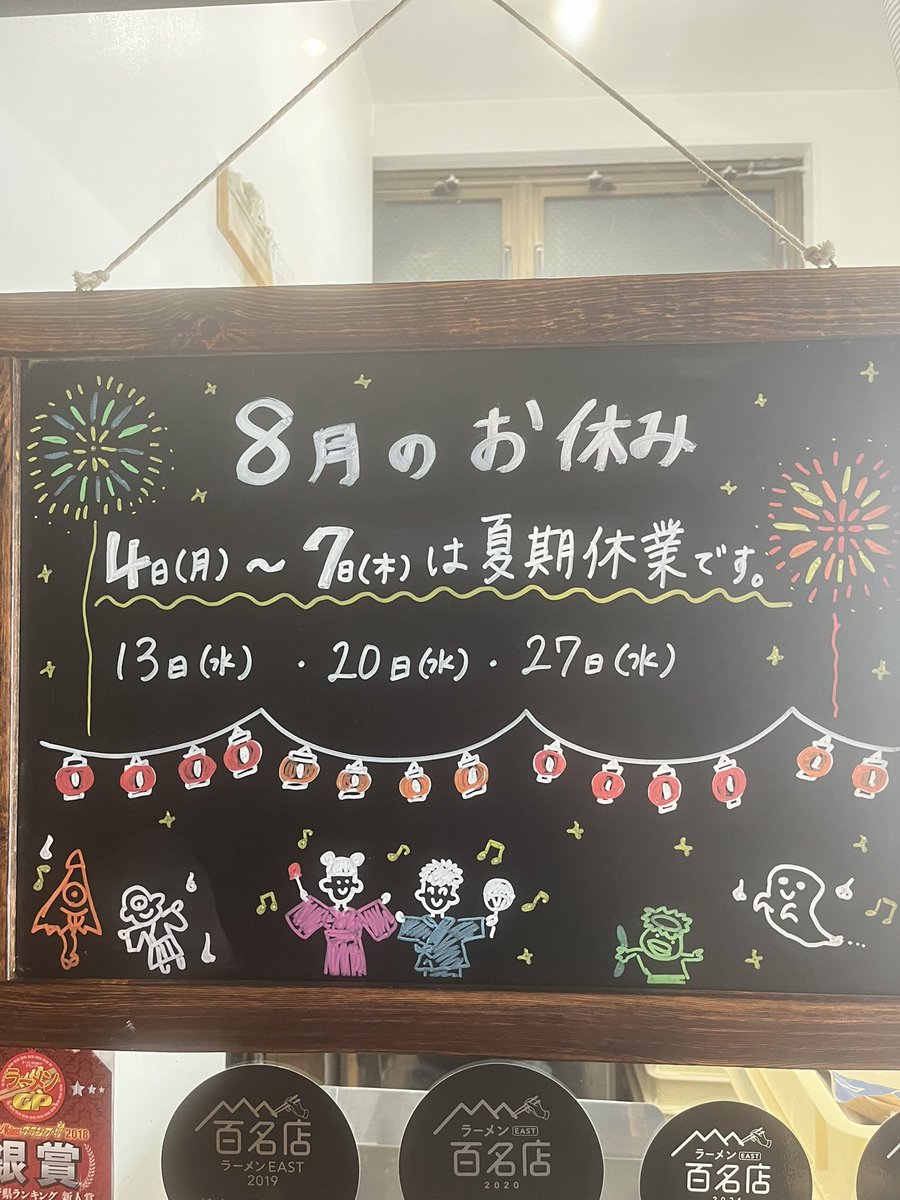 8月のお休み
4日(月)～7日(木)は夏期休業です。
13日(水)・20日(水)・27日(水)
ラーメン
GP
2018
銀賞
県ランキング 新人賞
百名店
ラーメンEAST
2019
ラーメン EAST
百名店
2020
ラーメン EAST
百名店